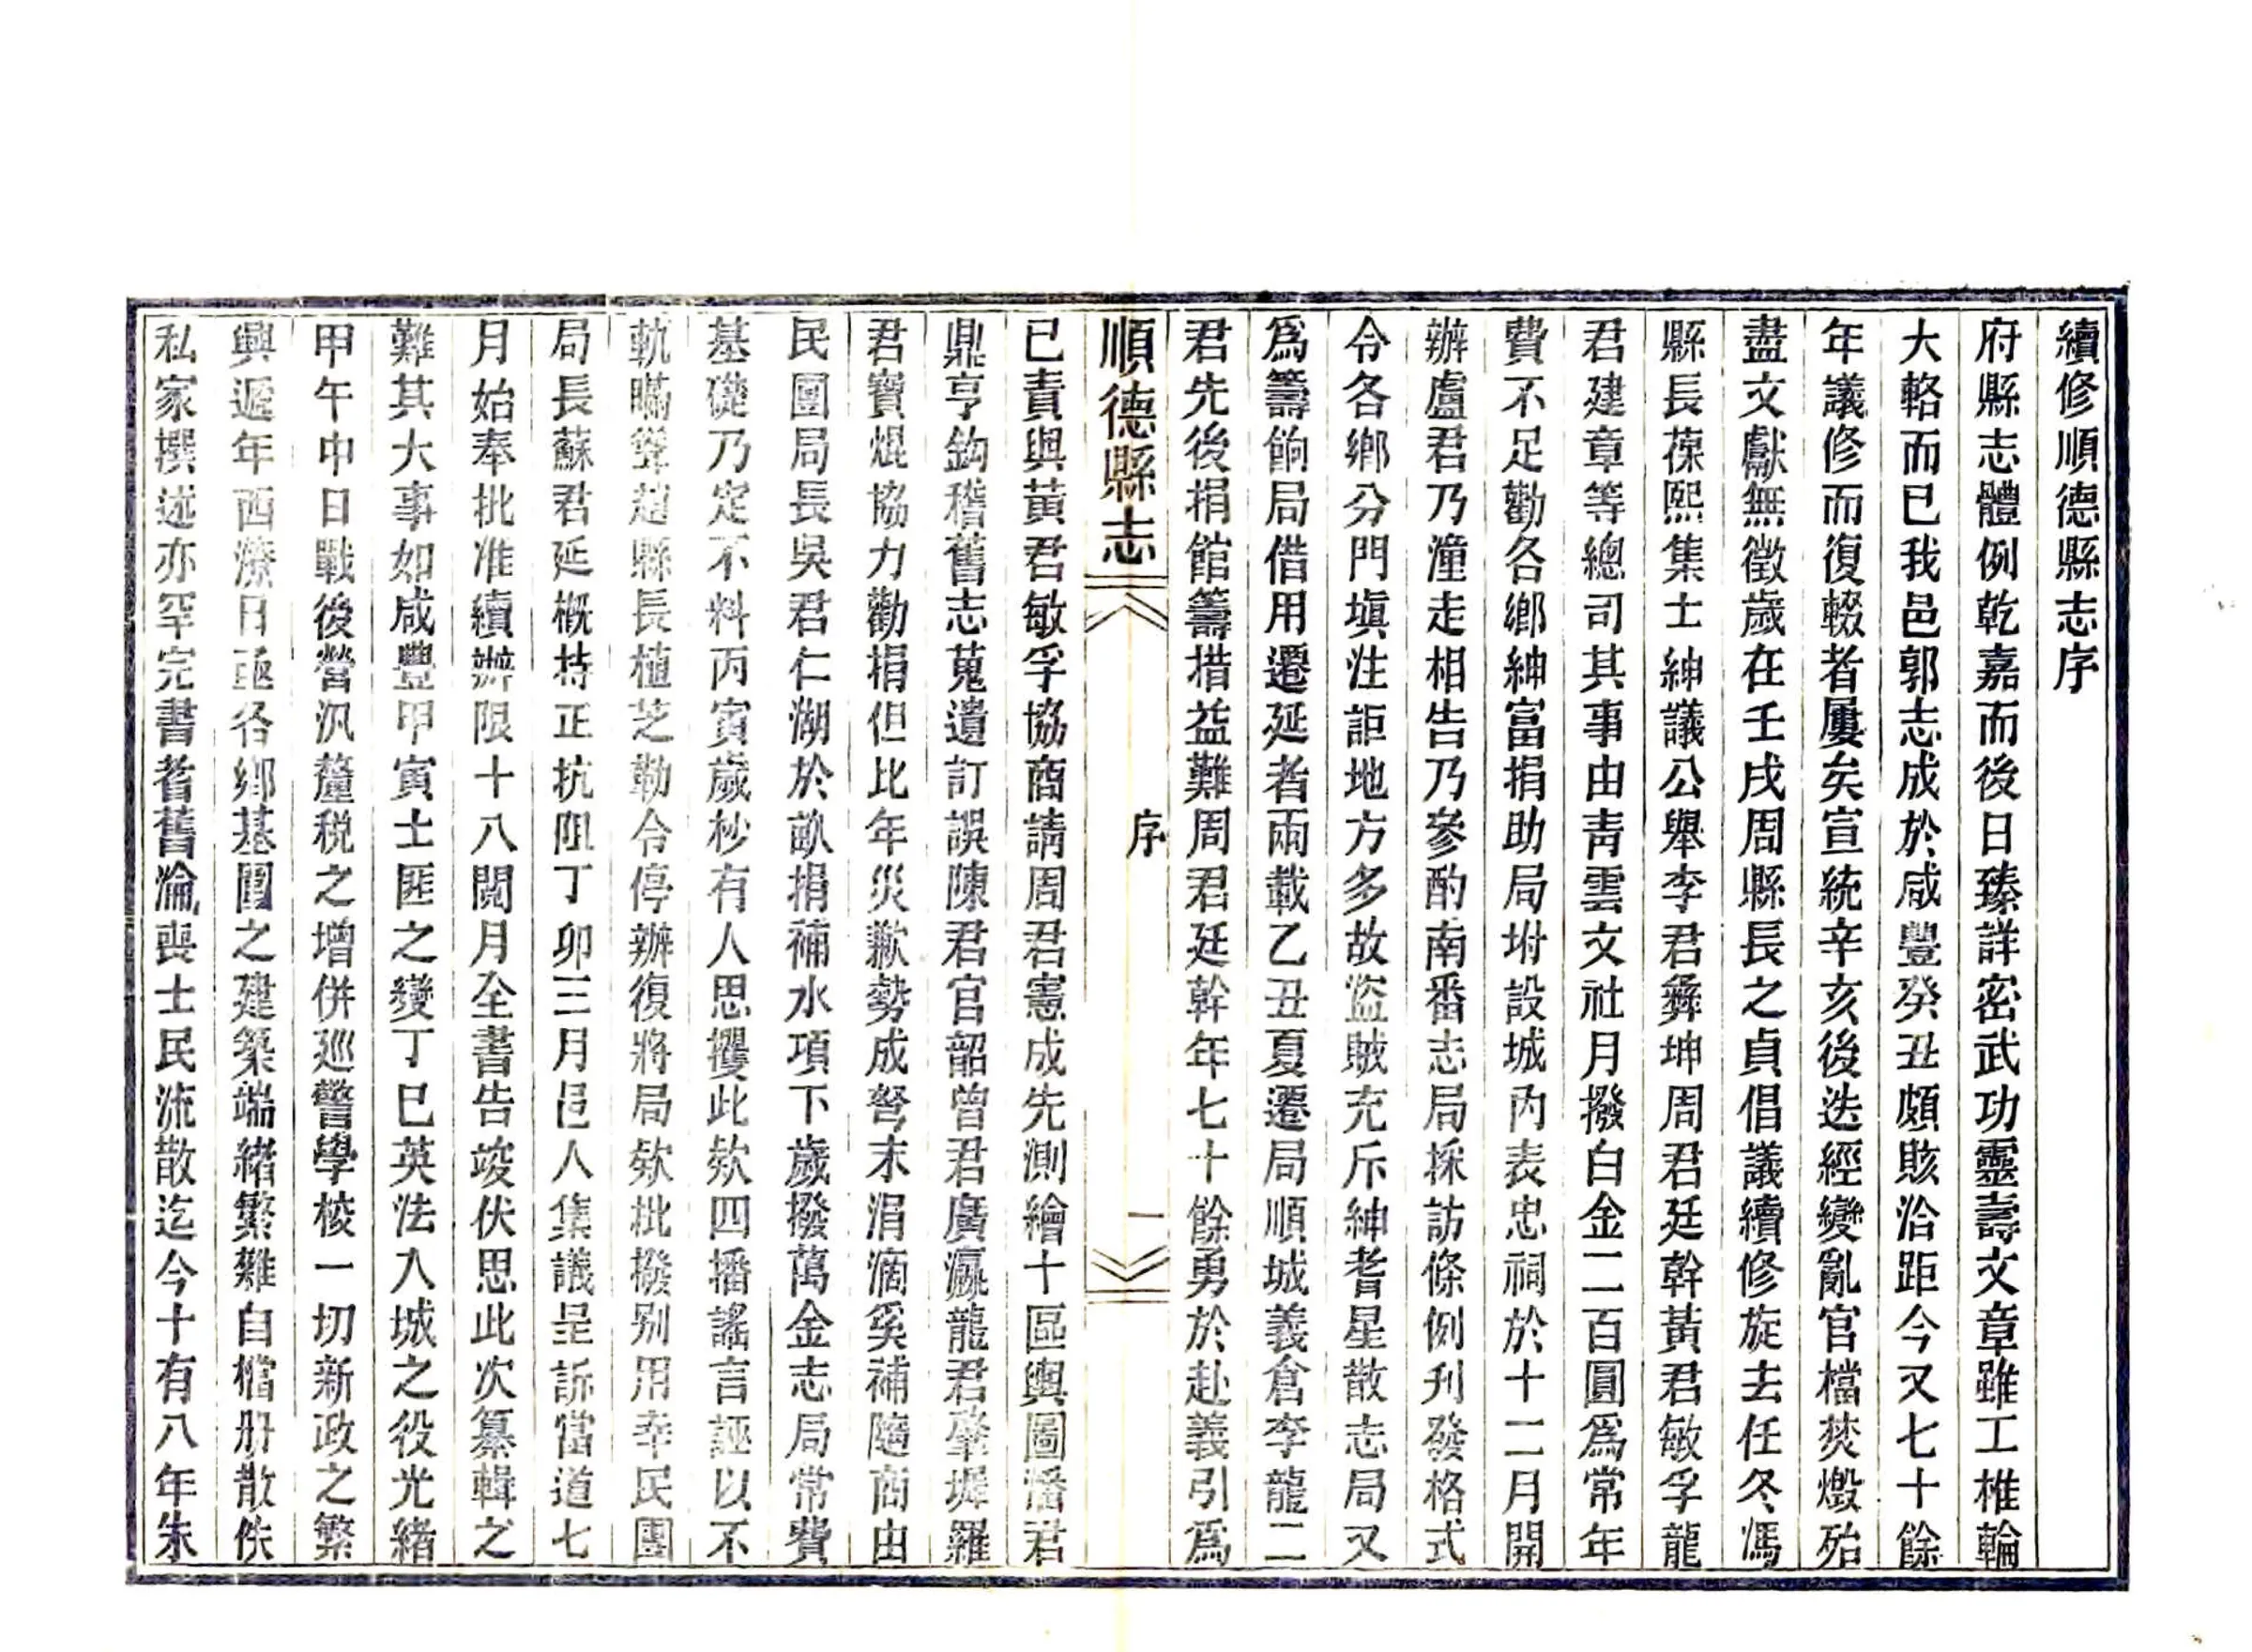 續修順德縣志序
府縣志體例乾嘉而後日臻詳密武功靈壽文章雖工椎輪
大輅而已我邑郭志成於咸豐癸丑頗賅洽距今又七十餘
年議修而復輟者屢矣宣統辛亥後迭經變亂官檔焚燬殆
盡文獻無徵歲在壬戌周縣長之貞倡議續修旋去任冬馮
縣長葆熙集士紳議公舉李君彝坤周君廷幹黃君敏孚龍
君建章等總司其事由靑雲文社月撥白金二百圓爲常年
費不足勸各鄉紳富捐助局坿設城內表忠祠於十二月開
辦盧君乃潼走相告乃參酌南番志局採訪條例刋發格式
令各鄉分門塡注詎地方多故盜賊充斥紳耆星散志局又
爲籌餉局借用遷延者兩載乙丑夏遷局順城義倉李龍二
君先後捐館籌措益難周君廷幹年七十餘勇於赴義引爲
順德縣志
序
一
已責與黃君敏孚協商請周君憲成先測繪十區輿圖潘君
鼎亨鈎稽舊志蒐遺訂誤陳君官韶曾君廣瀛龍君肇墀羅
君寶焜協力勸捐但比年災歉勢成弩末涓滴奚補隨商由
民團局長吳君仁湖於畝捐補水項下歲撥萬金志局常費
基礎乃定不料丙寅歲杪有人思攫此欵四播謠言誣以不
軌瞞聳趙縣長植芝勒令停辦復將局欵批撥别用幸民團
局長蘇君延概持正抗阻丁卯三月邑人集議呈訴當道七
月始奉批准續辦限十八閱月全書告竣伏思此次纂輯之
難其大事如咸豐甲寅士匪之變丁巳英法入城之役光緒
甲午中日戰後營汛釐税之增併廵警學校一切新政之繁
興遞年西潦日亟各鄉基圍之建築端緒繁難自檔册散佚
私家撰述亦罕完書耆舊淪喪士民流散迄今十有八年朱